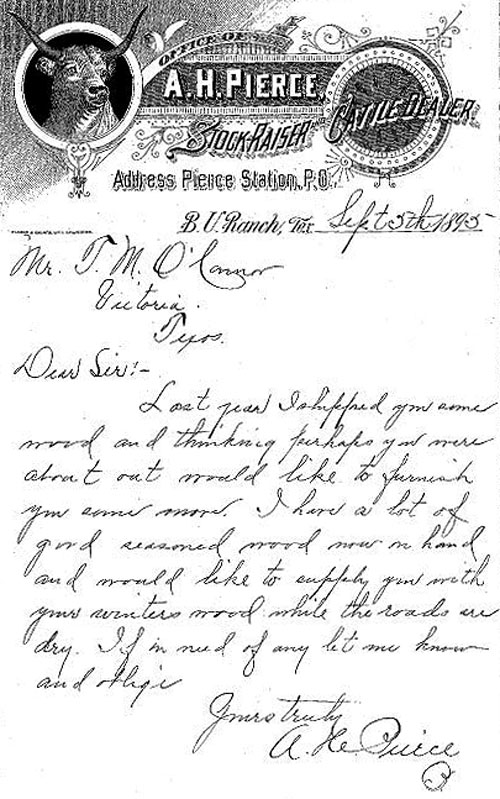 OFFICE OF
A. H. PIERCE
STOCK-RAISER AND CATTLE DEALER.
Address Pierce Station, P.O.
B. U. Ranch, Tex Sept 5th 1895
Mr. T. M. O'Connor
Victoria.
Texas.
Dear Sir:-
Last year I shipped you some
wood and thinking perhaps you were
about out would like to furnish
you some more. I have a lot of
good seasoned wood now on hand
and would like to supply you with
your winters wood while the roads are
dry. If in need of any let me know
and oblige
Yours truly
A. H. Pierce